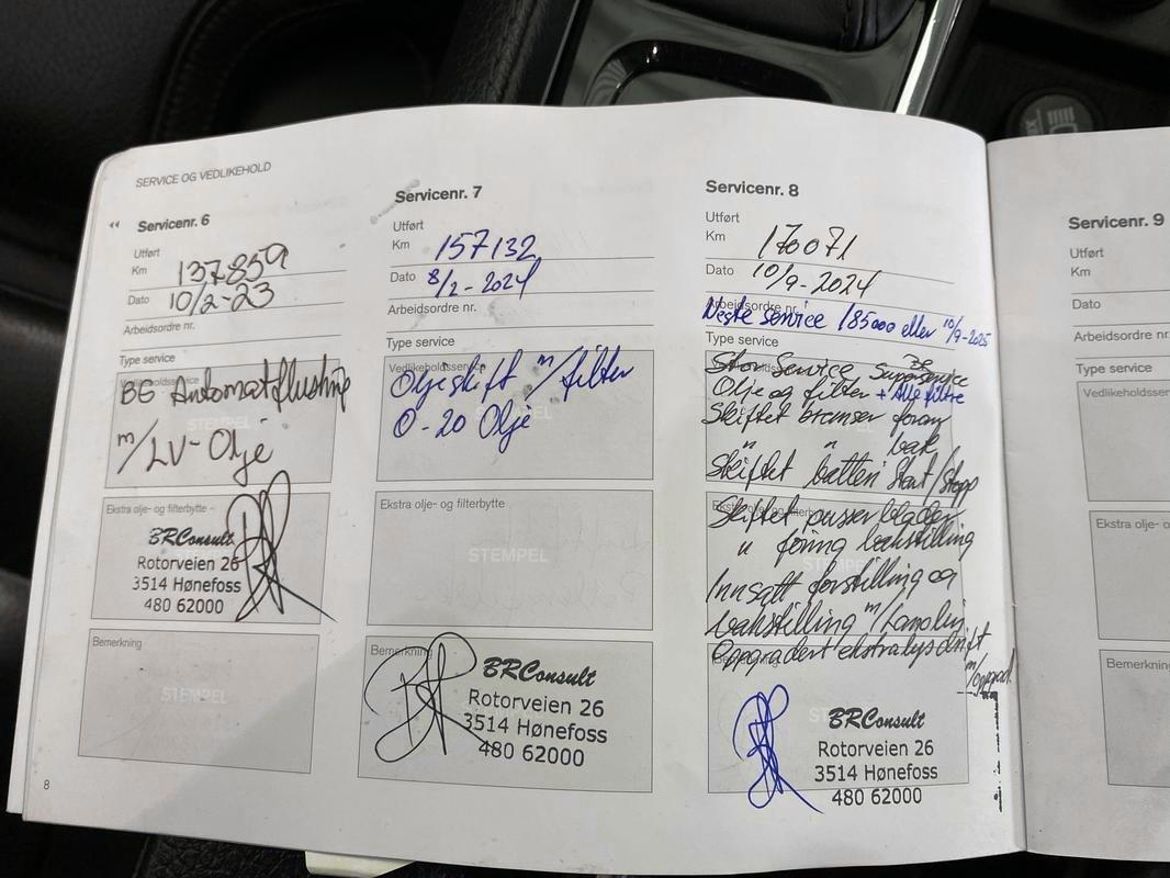 SERVICE OG VEDLIKEHOLD
Servicenr. 6
Utført
Km 137859
Dato 10/2-23
Arbeidsordre nr.
Type service
Vedlikeholdsservice
BG Automatflushing
m/LV-Olje
STEMPEL
Ekstra olje- og filterbytte -
BRConsult
Rotorveien 26
3514 Hønefoss
480 62000
Bemerkning
STEMPEL
8
Servicenr. 7
Utført
Km 157132
Dato 8/2-2024
Arbeidsordre nr.
Type service
Vedlikeholdsservice
Oljeskift m/filter
0-20 Olje
Ekstra olje- og filterbytte
STEMPEL
Bemerkning
BRConsult
Rotorveien 26
3514 Hønefoss
480 62000
Servicenr. 8
Utført
Km 170071
Dato 10/9-2024
Arbeidsordre nr.
Neste service 185000 eller 10/9-2025
Type service
Stor Service
Olje og filter + Alle filtre
Skiftet bremser foran
" " bak
Skiftet batteri Start/Stopp
Skiftet pusser blader
" foring bakstilling
Innsatt forstilling og
bakstilling m/Lanolin
Oppgradert ekstralys drift
m/oppgrad.
BRConsult
Rotorveien 26
3514 Hønefoss
480 62000
Servicenr. 9
Utført
Km
Dato
Arbeidsordre nr.
Type service
Vedlikeholdsser
Ekstra olje- o
Bemerkning